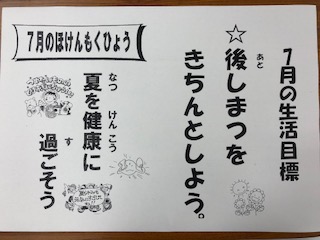 7月の生活目標
☆後しまつを
あと
きちんとしよう。
7月のほけんもくひょう
夏を健康に
なつ けんこう
過ごそう
す